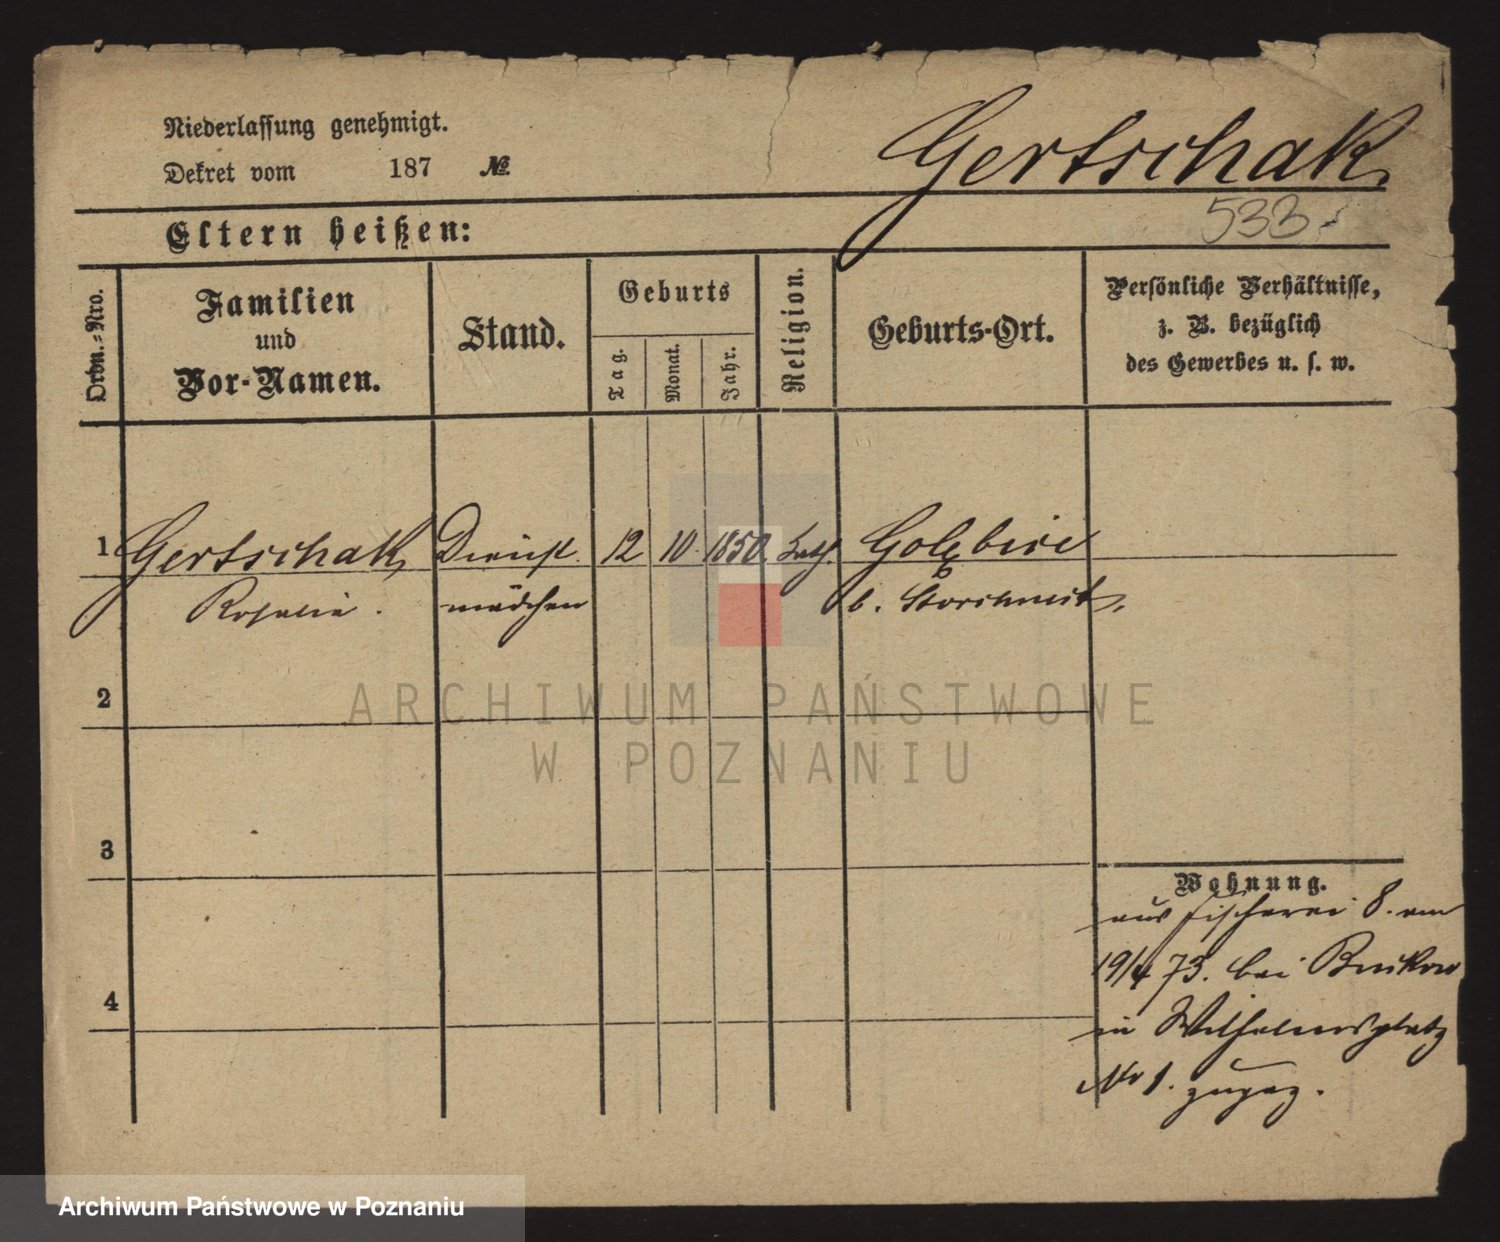 Niederlassung genehmigt.
Dekret vom 187 №
Gertschak
533
Eltern heißen:
Ordn.-Nro.
Familien
und
Vor-Namen.
Stand.
Geburts
Tag.
Monat.
Jahr.
Religion.
Geburts-Ort.
Persönliche Verhältnisse,
z. B. bezüglich
des Gewerbes u. s. w.
1 Gertschak, Dienst 12 10. 1850. kath.
Rosalia. mädchen b.
2
ARCHIWUM PAŃSTWOWE
W POZNANIU
3
4
Wohnung.
aus Fischerei 8. am
19/4 73. bei
in Wilhelmsplatz
No 1. zugez.
Archiwum Państwowe w Poznaniu